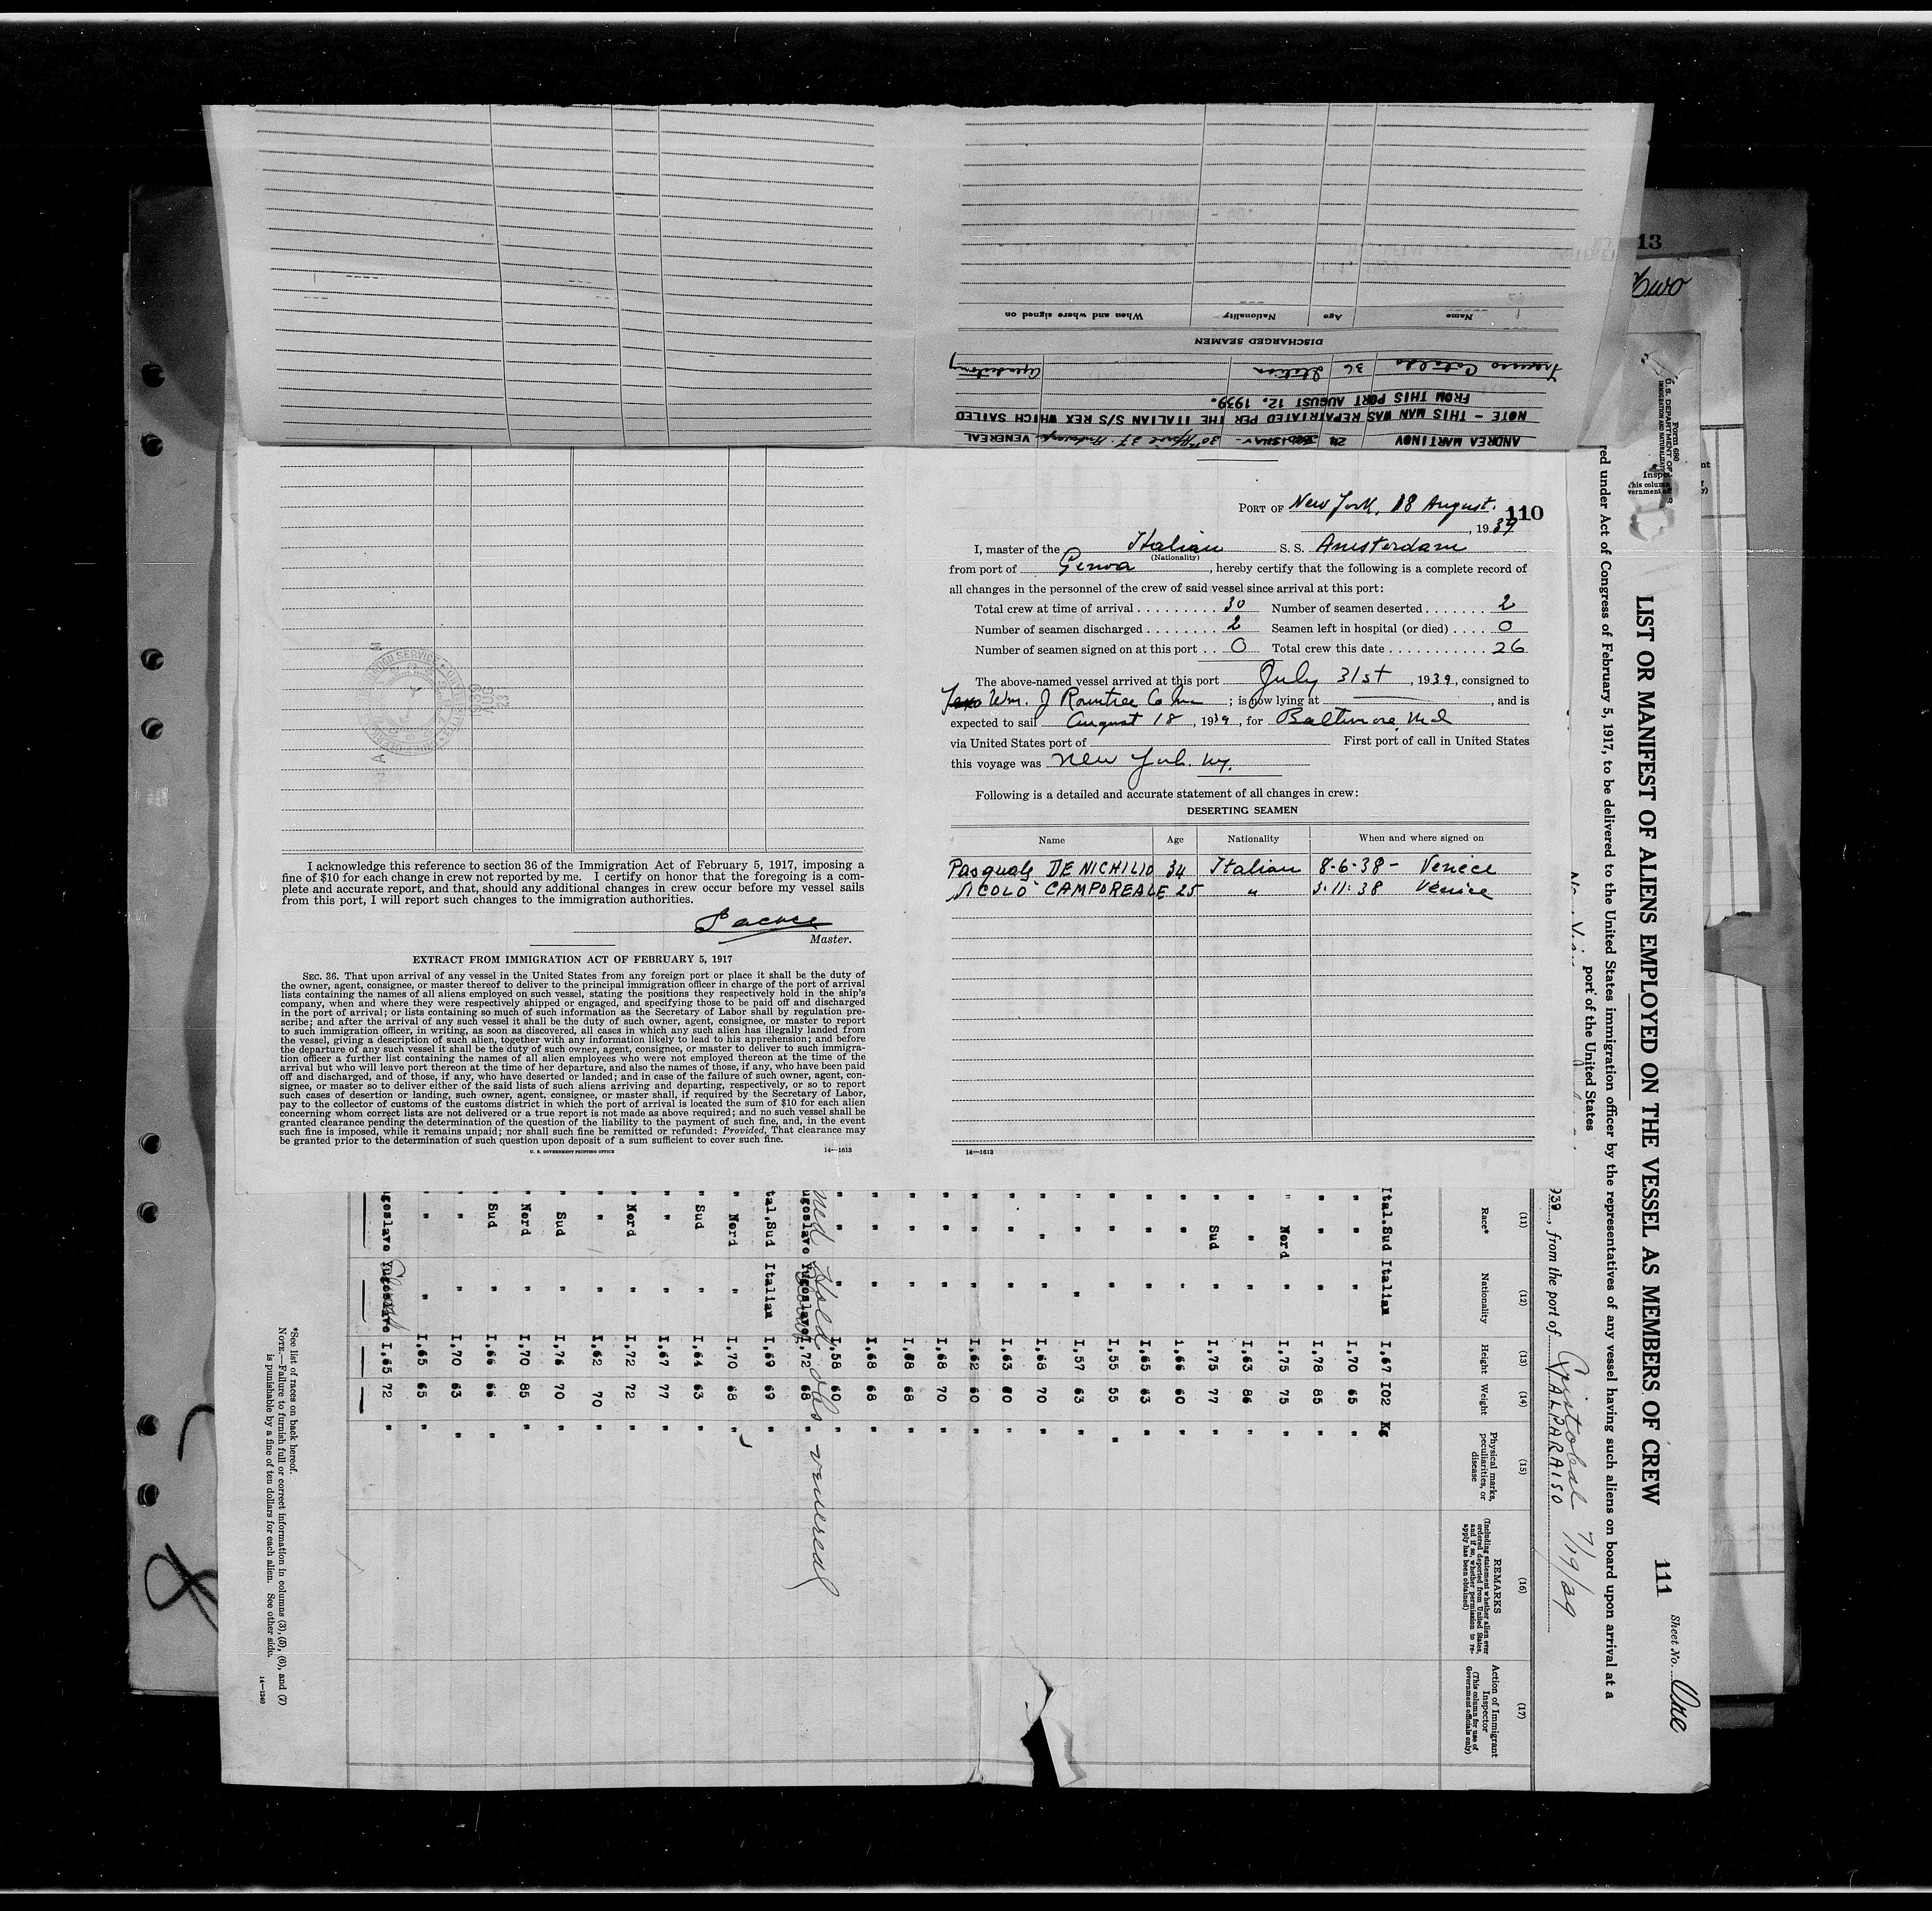 13
Two
Name
Age
Nationality
When and where signed on
DISCHARGED SEAMEN
36
FROM THIS PORT AUGUST 12, 1939.
NOTE - THIS MAN WAS REPATRIATED PER THE ITALIAN S/S REX WHICH SAILED
ANDREA MARTINOV 24 VENEREAL
PORT OF New York, 18 August. 110
, 1939
I, master of the Italian S. S. Amsterdam
(Nationality)
from port of Genoa, hereby certify that the following is a complete record of
all changes in the personnel of the crew of said vessel since arrival at this port:
Total crew at time of arrival 30 Number of seamen deserted 2
Number of seamen discharged 2 Seamen left in hospital (or died) 0
Number of seamen signed on at this port 0 Total crew this date 26
The above-named vessel arrived at this port July 31st, 1939, consigned to
Wm. J Rountree Co Inc; is now lying at , and is
expected to sail August 18, 1939, for Baltimore Md
via United States port of First port of call in United States
this voyage was New York. Ny.
Following is a detailed and accurate statement of all changes in crew:
DESERTING SEAMEN
Name Age Nationality When and where signed on
Pasquale DE NICHILIO 34 Italian 8-6-38 - Venice
NICOLO CAMPOREALE 25 " 3-11-38 Venice
14—1613
I acknowledge this reference to section 36 of the Immigration Act of February 5, 1917, imposing a
fine of $10 for each change in crew not reported by me. I certify on honor that the foregoing is a com-
plete and accurate report, and that, should any additional changes in crew occur before my vessel sails
from this port, I will report such changes to the immigration authorities.
Master.
EXTRACT FROM IMMIGRATION ACT OF FEBRUARY 5, 1917
SEC. 36. That upon arrival of any vessel in the United States from any foreign port or place it shall be the duty of
the owner, agent, consignee, or master thereof to deliver to the principal immigration officer in charge of the port of arrival
lists containing the names of all aliens employed on such vessel, stating the positions they respectively hold in the ship's
company, when and where they were respectively shipped or engaged, and specifying those to be paid off and discharged
in the port of arrival; or lists containing so much of such information as the Secretary of Labor shall by regulation pre-
scribe; and after the arrival of any such vessel it shall be the duty of such owner, agent, consignee, or master to report
to such immigration officer, in writing, as soon as discovered, all cases in which any such alien has illegally landed from
the vessel, giving a description of such alien, together with any information likely to lead to his apprehension; and before
the departure of any such vessel it shall be the duty of such owner, agent, consignee, or master to deliver to such immigra-
tion officer a further list containing the names of all alien employees who were not employed thereon at the time of the
arrival but who will leave port thereon at the time of her departure, and also the names of those, if any, who have been paid
off and discharged, and of those, if any, who have deserted or landed; and in case of the failure of such owner, agent, con-
signee, or master so to deliver either of the said lists of such aliens arriving and departing, respectively, or so to report
such cases of desertion or landing, such owner, agent, consignee, or master shall, if required by the Secretary of Labor,
pay to the collector of customs of the customs district in which the port of arrival is located the sum of $10 for each alien
concerning whom correct lists are not delivered or a true report is not made as above required; and no such vessel shall be
granted clearance pending the determination of the question of the liability to the payment of such fine, and, in the event
such fine is imposed, while it remains unpaid; nor shall such fine be remitted or refunded: Provided, That clearance may
be granted prior to the determination of such question upon deposit of a sum sufficient to cover such fine.
U. S. GOVERNMENT PRINTING OFFICE 14—1613
Form 680
U.S. DEPARTMENT OF
IMMIGRATION AND NATURALIZATION
111 Sheet No. One
LIST OR MANIFEST OF ALIENS EMPLOYED ON THE VESSEL AS MEMBERS OF CREW
red under Act of Congress of February 5, 1917, to be delivered to the United States immigration officer by the representatives of any vessel having such aliens on board upon arrival at a
port of the United States
939, from the port of Cristobal 7/19/39
VALPARAISO
(11) (12) (13) (14) (15) (16) (17)
Race* Nationality Height Weight Physical marks, peculiarities, or disease
REMARKS
(Including statement whether alien ever ordered deported from United States, and if so, whether permission to re-apply has been obtained)
Action of Immigrant Inspector
(This column for use of Government officials only)
Ital.Sud Italian I,67 I02 Kg
" " I,70 65 "
" " I,78 85 "
Nord " I,75 75 "
" " I,63 86 "
Sud " I,75 77 "
" " 1.66 60 "
" " I,65 63 "
" " I,55 55 "
" " I,57 63 "
" " I,68 70 "
" " I,63 80 "
" " I,62 60 "
" " I,68 70 "
" " I,68 68 "
" " I,68 68 "
" " I,58 60 "
ugoslave Yugoslave I,72 68 "
Hold obs venereal
tal.Sud Italian I,69 69 "
Nord " I,70 68 "
Sud " I,64 63 "
" " I,67 77 "
Nord " I,72 72 "
" " I,62 70 "
Sud " I,76 70 "
Nord " I,70 85 "
Sud " I,66 66 "
" " I,70 63 "
" " I,65 65 "
goslave Yugoslave I,65 72 "
*See list of races on back hereof.
NOTE.—Failure to furnish full or correct information in columns (3), (5), (6), and (7)
is punishable by a fine of ten dollars for each alien. See other side.
14—1240